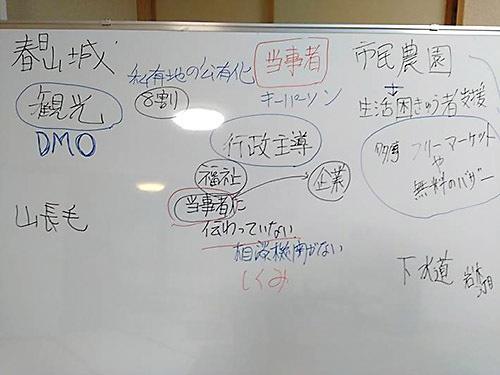 春日山城
観光
DMO
山長毛
私有地の公有化
8割
当事者
キーパーソン
行政主導
福祉
企業
当事者に
伝わっていない
相談機関がない
しくみ
市民農園
生活困きゅう者支援
フリーマーケット
や
無料のバザー
下水道